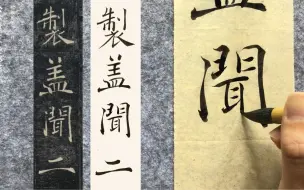 製盖聞二
製盖聞二
盖聞